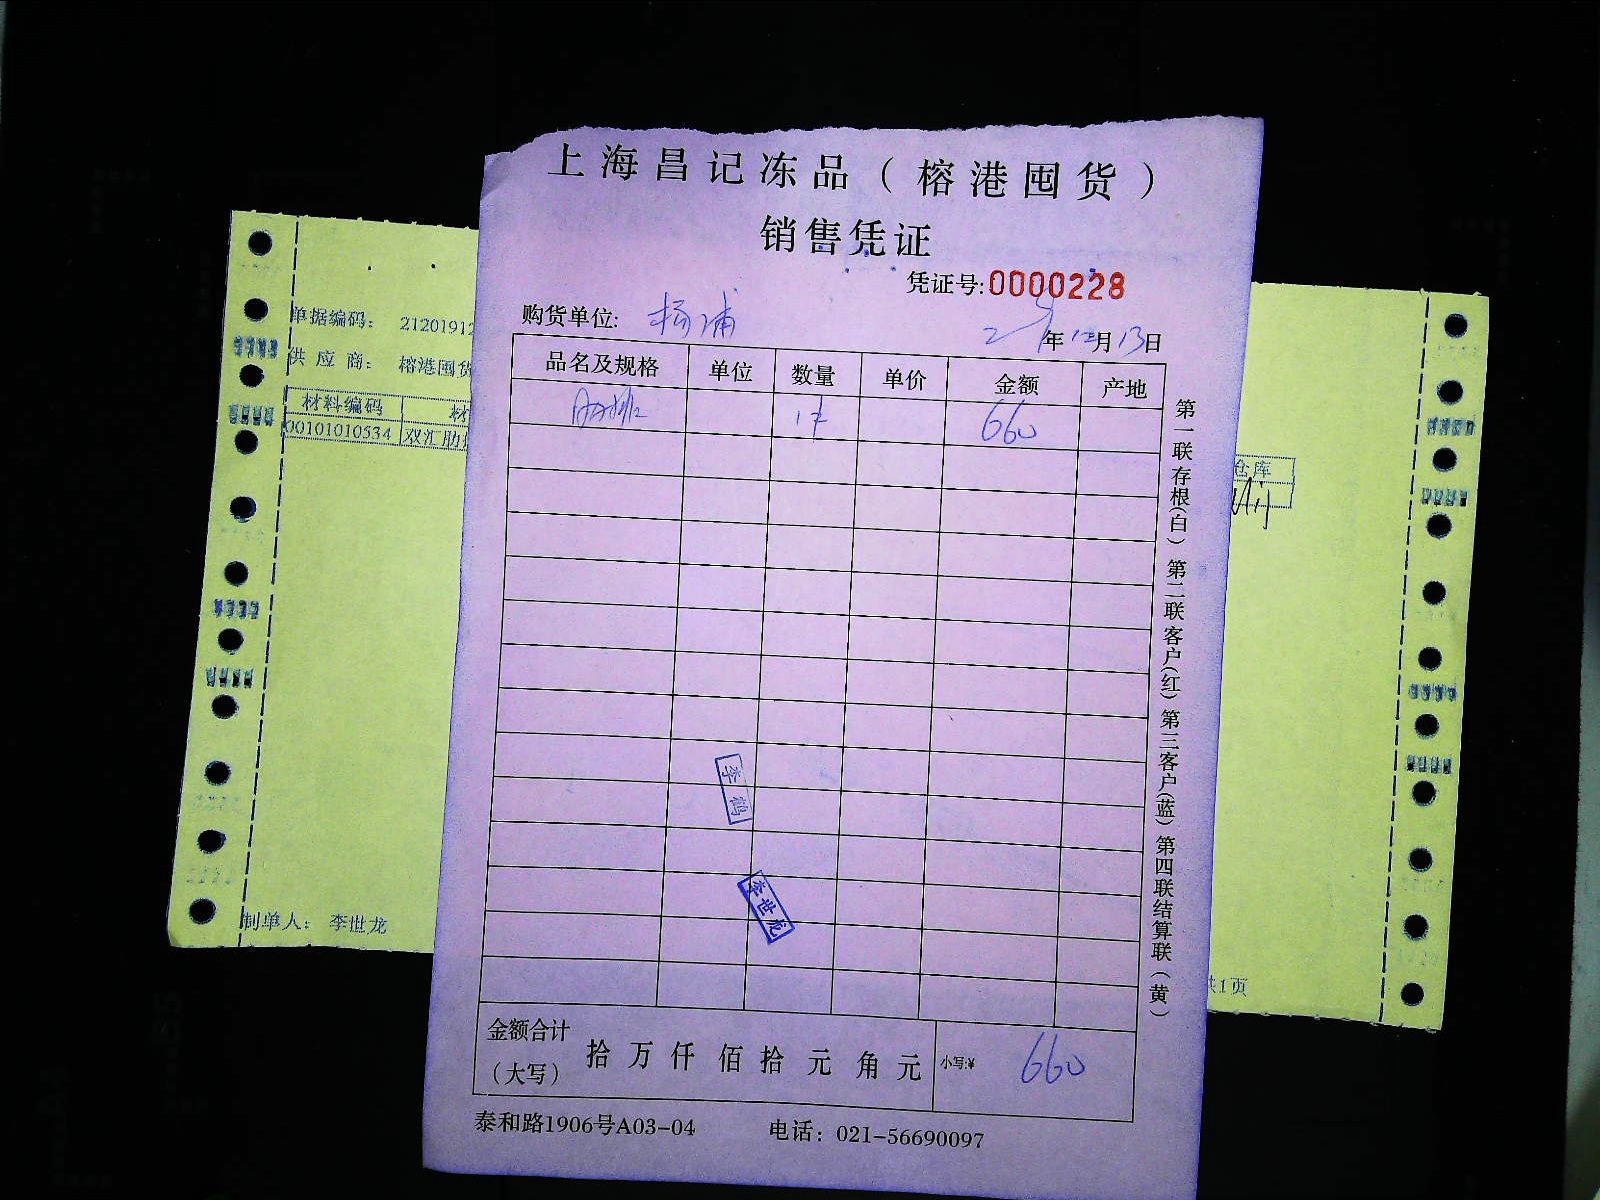 上海昌记冻品（榕港囤货）
销售凭证
凭证号:0000228
购货单位: 杨浦
年12月13日
品名及规格 单位 数量 单价 金额 产地
肋排 1件 660
第一联存根(白) 第二联客户(红) 第三客户(蓝) 第四联结算联(黄)
李鹤
李世龙
金额合计
(大写)
拾万仟佰拾元角元
小写:¥ 660
泰和路1906号A03-04 电话：021-56690097
单据编码： 21201912
供应商： 榕港囤货
材料编码 材
00101010534 双汇肋
仓库
制单人： 李世龙
共1页